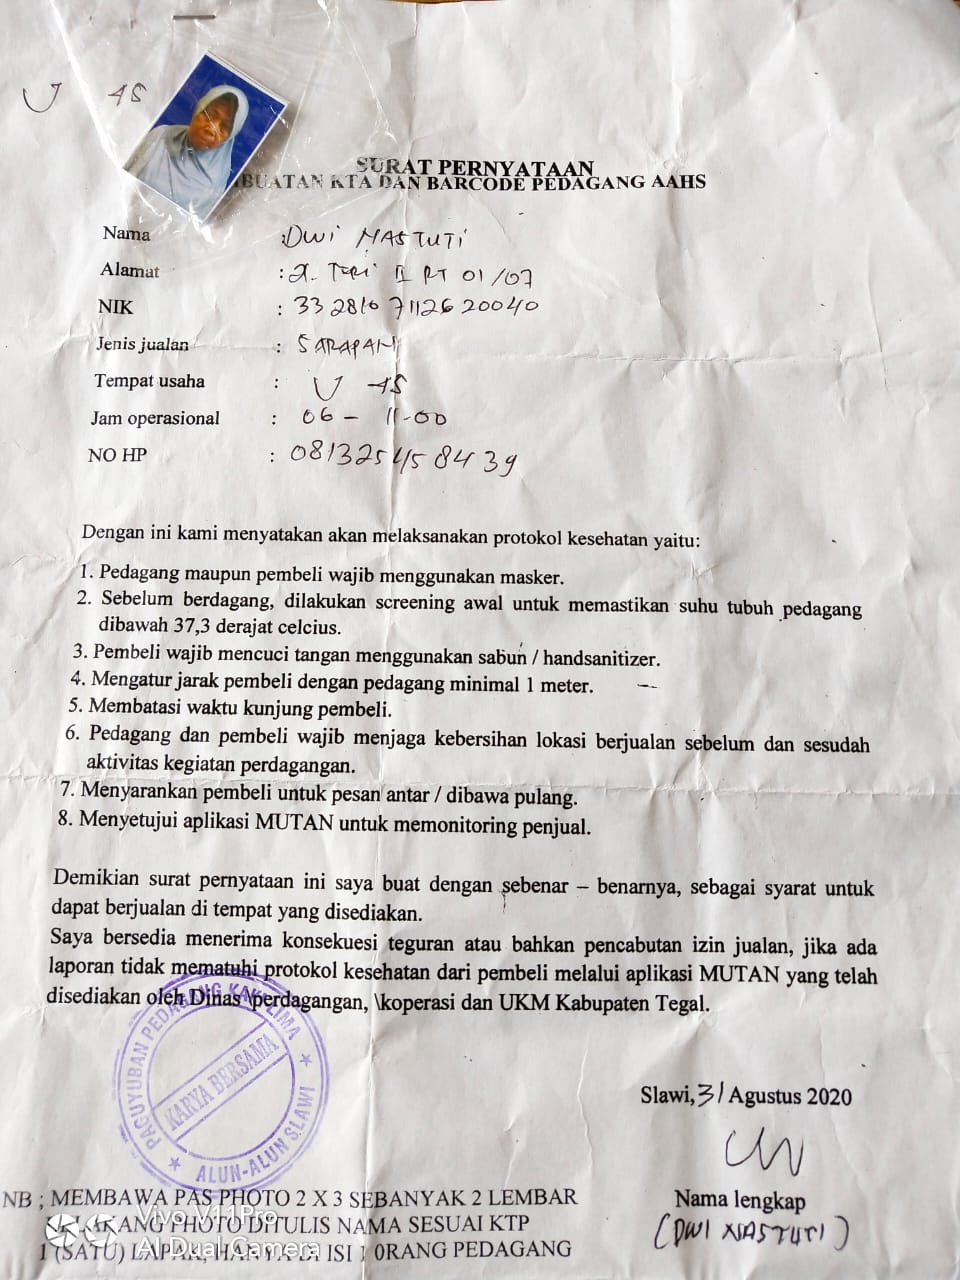 U 45
SURAT PERNYATAAN
BUATAN KTA DAN BARCODE PEDAGANG AAHS
Nama : DWI NASTUTI
Alamat : RT 01/07
NIK : 3328107112620040
Jenis jualan : SARAPAN
Tempat usaha : U 45
Jam operasional : 06 - 11-00
NO HP : 081325458439
Dengan ini kami menyatakan akan melaksanakan protokol kesehatan yaitu:
1. Pedagang maupun pembeli wajib menggunakan masker.
2. Sebelum berdagang, dilakukan screening awal untuk memastikan suhu tubuh pedagang
dibawah 37,3 derajat celcius.
3. Pembeli wajib mencuci tangan menggunakan sabun / handsanitizer.
4. Mengatur jarak pembeli dengan pedagang minimal 1 meter.
5. Membatasi waktu kunjung pembeli.
6. Pedagang dan pembeli wajib menjaga kebersihan lokasi berjualan sebelum dan sesudah
aktivitas kegiatan perdagangan.
7. Menyarankan pembeli untuk pesan antar / dibawa pulang.
8. Menyetujui aplikasi MUTAN untuk memonitoring penjual.
Demikian surat pernyataan ini saya buat dengan sebenar – benarnya, sebagai syarat untuk
dapat berjualan di tempat yang disediakan.
Saya bersedia menerima konsekuesi teguran atau bahkan pencabutan izin jualan, jika ada
laporan tidak mematuhi protokol kesehatan dari pembeli melalui aplikasi MUTAN yang telah
disediakan oleh Dinas \perdagangan, \koperasi dan UKM Kabupaten Tegal.
PAGUYUBAN PEDAGANG KAKI LIMA
KARYA BERSAMA
ALUN-ALUN SLAWI
Slawi, 31 Agustus 2020
Nama lengkap
(DWI NASTUTI)
NB ; MEMBAWA PAS PHOTO 2 X 3 SEBANYAK 2 LEMBAR
PHOTO DITULIS NAMA SESUAI KTP
1 (SATU) LAPAK, HANYA DI ISI 1 0RANG PEDAGANG
Vivo V11Pro
AI Dual Camera